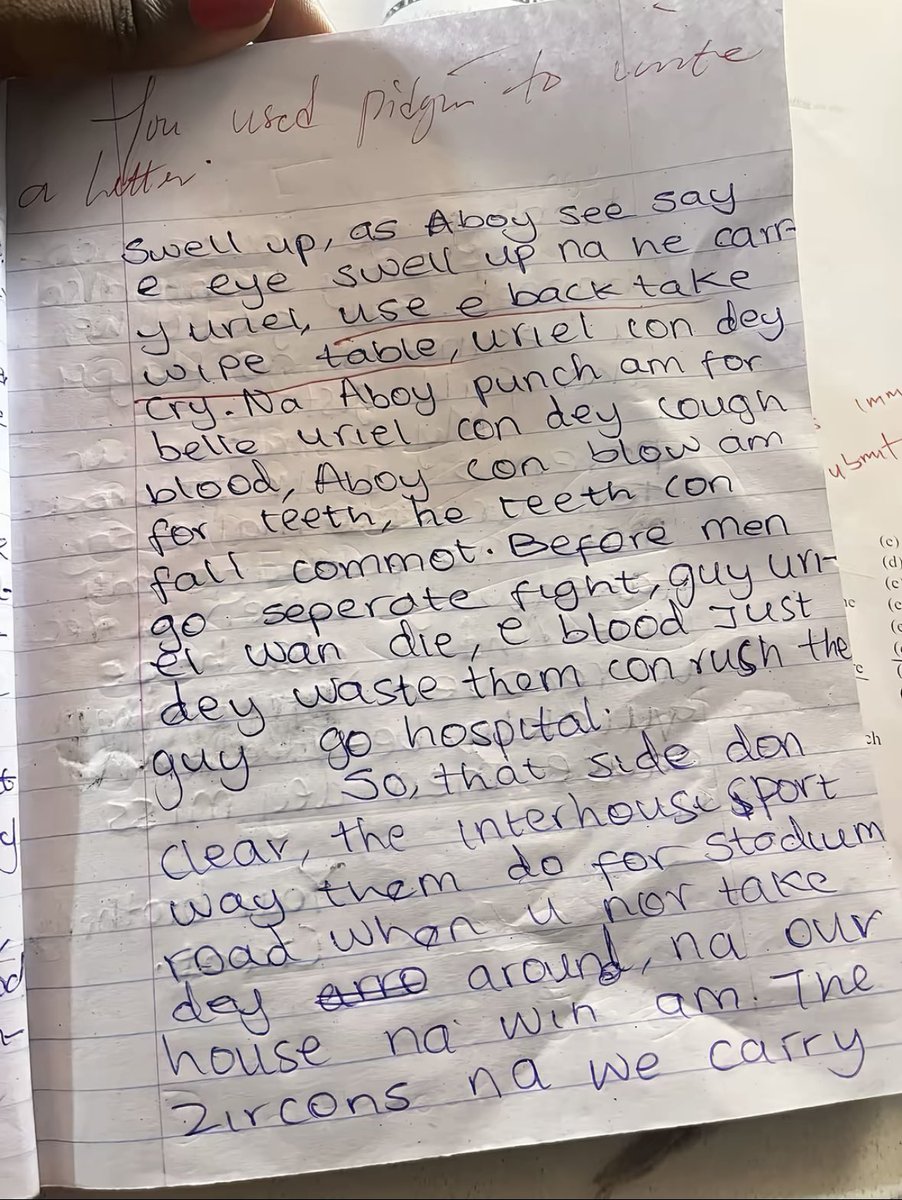 You used pidgin to write
a letter.
Swell up, as Aboy see say
e eye swell up na he carr-
y uriel, use e back take
wipe table, uriel con dey
cry. Na Aboy punch am for
belle uriel con dey cough
blood, Aboy con blow am
for teeth, he teeth con
fall commot. Before men
go seperate fight, guy uri-
el wan die, e blood Just
dey waste them con rush the
guy go hospital.
So, that side don
clear, the interhouse sport
way them do for stadium
road when u nor take
dey around, na our
house na win am. The
Zircons na we carry
imm
ubmit
(c)
(d)
ch